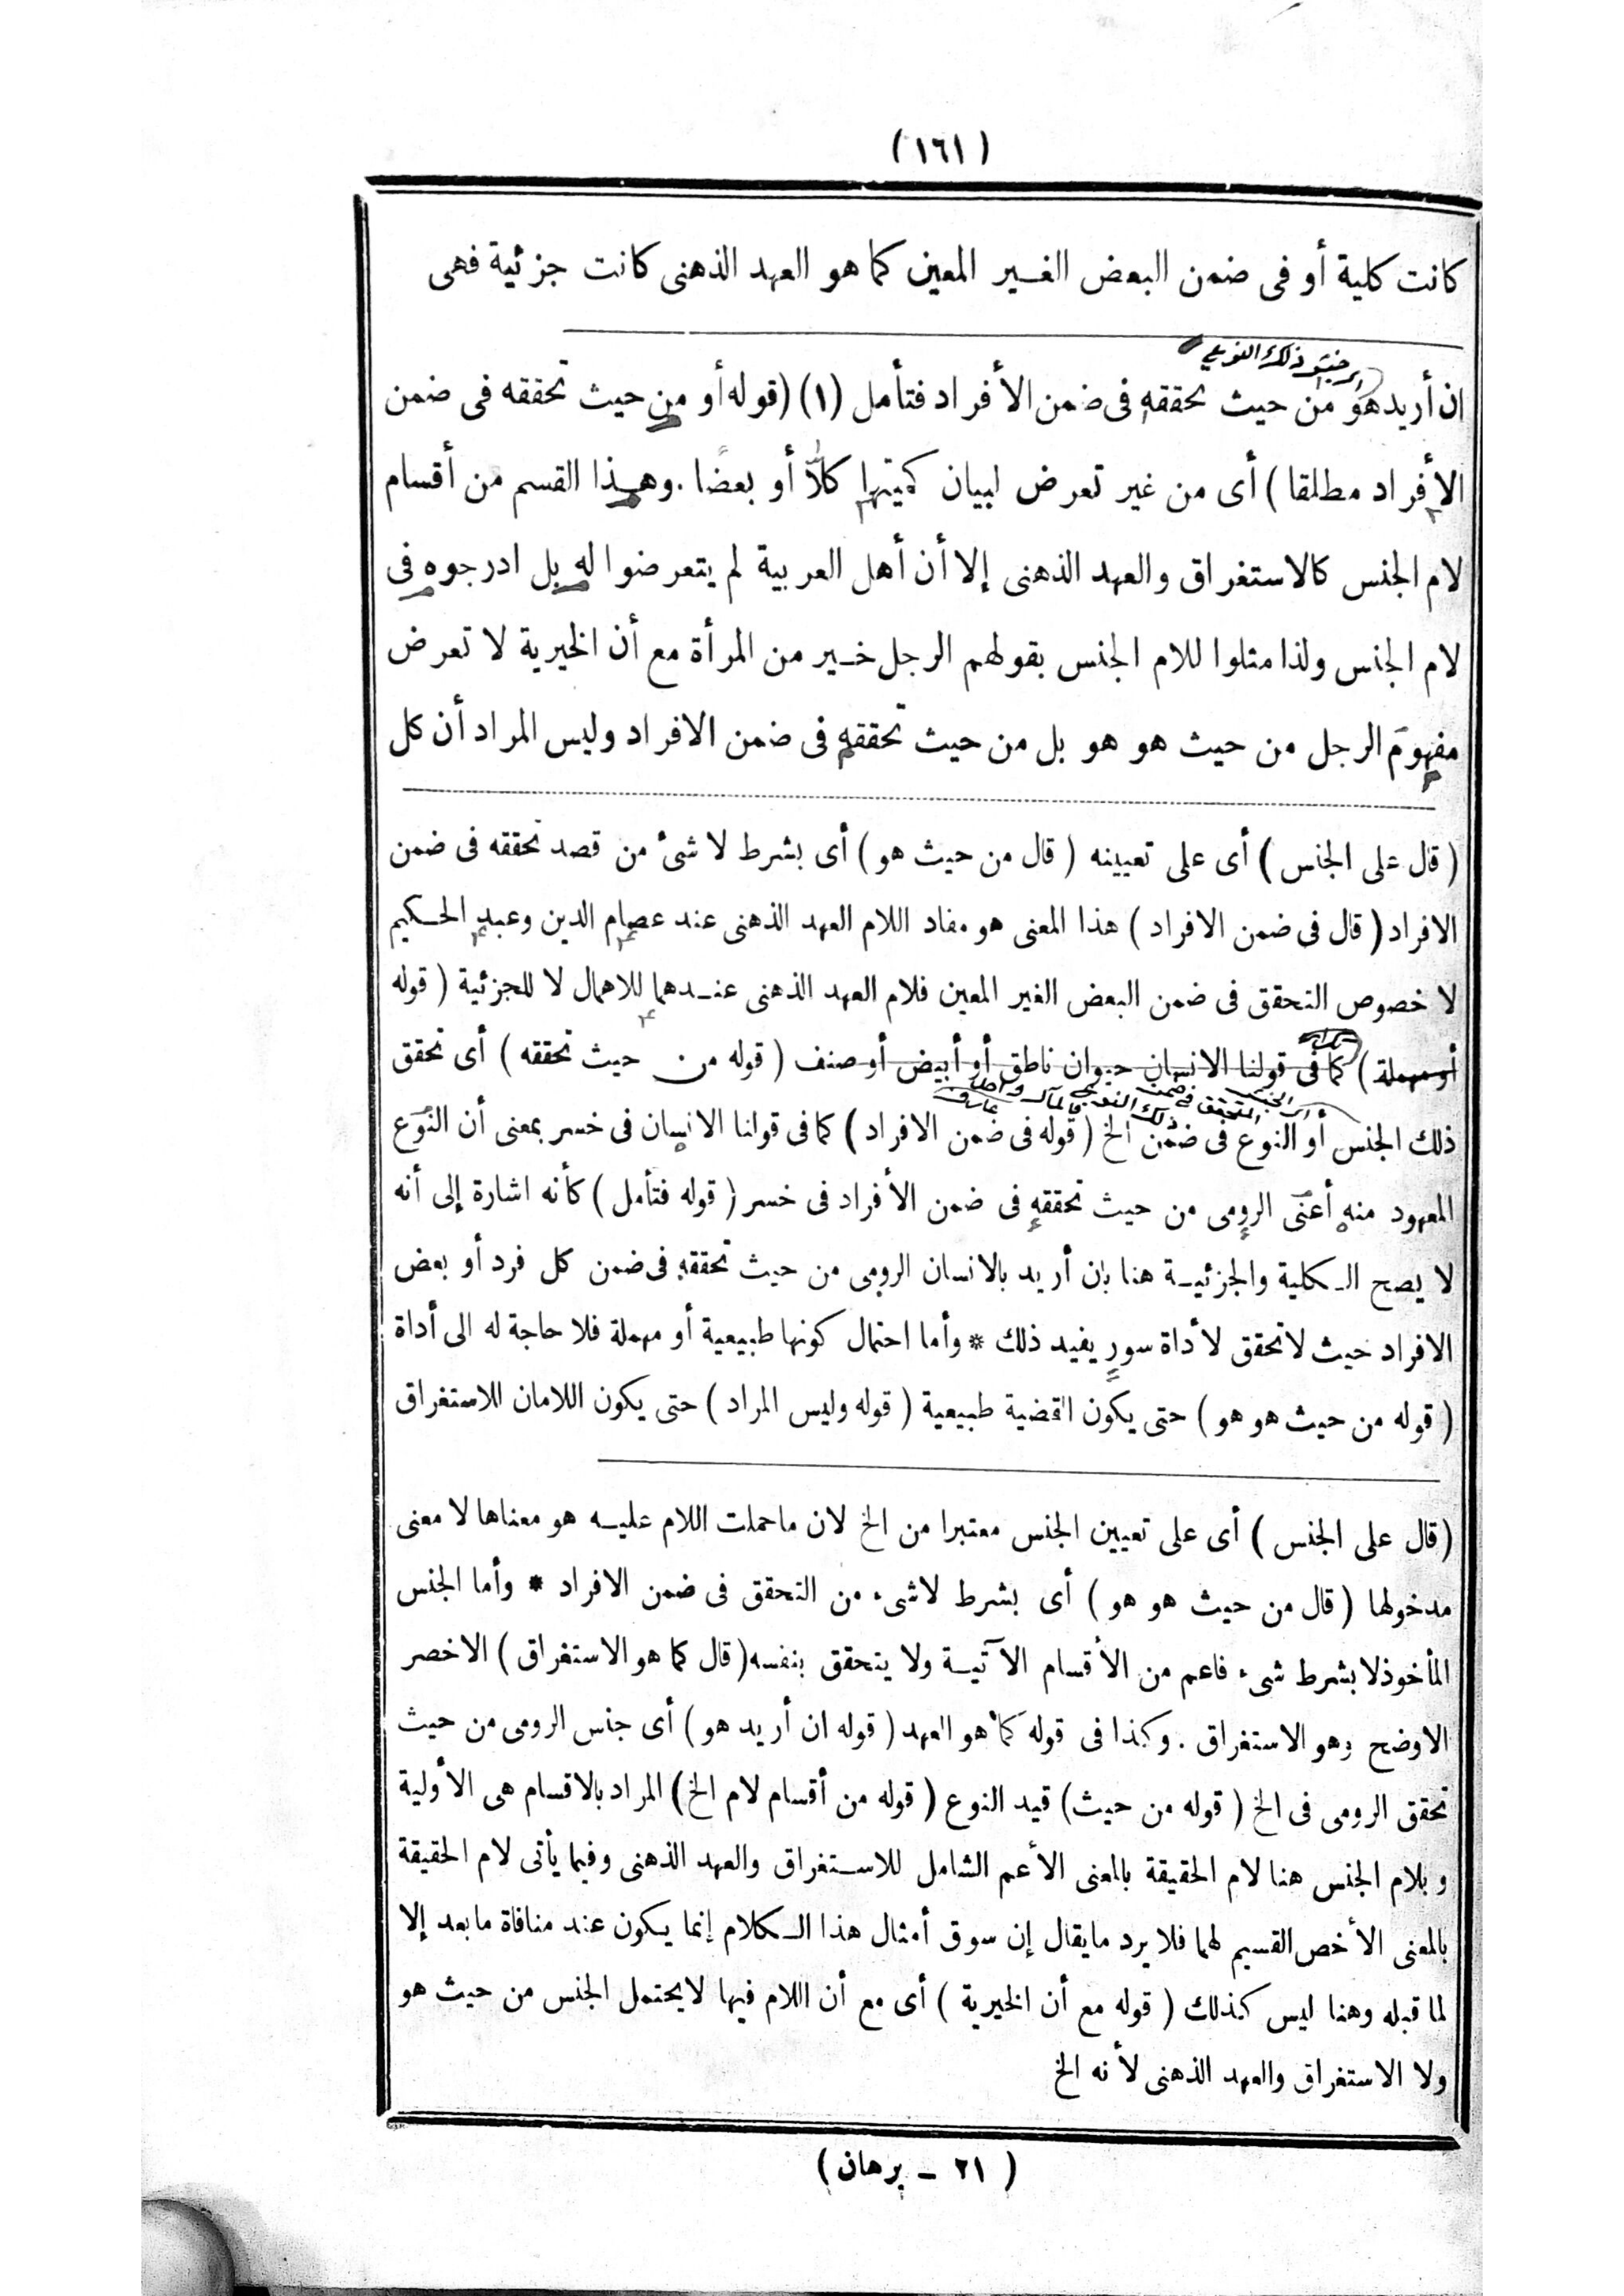 (١٦١)
كانت كلية أو فى ضمن البعض الغير المعين كما هو العهد الذهنى كانت جزئية فهى
ذلك النوع
ان أريد هو من حيث تحققه فى ضمن الأفراد فتأمل (١) (قوله أو من حيث تحققه فى ضمن
الأفراد مطلقا) أى من غير تعرض لبيان كميتها كلاًّ أو بعضًا. وهذا القسم من أقسام
لام الجنس كالاستغراق والعهد الذهنى إلا أن أهل العربية لم يتعرضوا له بل ادرجوه فى
لام الجنس ولذا مثلوا للام الجنس بقولهم الرجل خير من المرأة مع أن الخيرية لا تعرض
مفهومَ الرجل من حيث هو هو بل من حيث تحققه فى ضمن الافراد وليس المراد أن كل
(قال على الجنس) أى على تعيينه (قال من حيث هو) أى بشرط لا شئ من قصد تحققه فى ضمن
الافراد (قال فى ضمن الافراد) هذا المعنى هو مفاد اللام العهد الذهنى عند عصام الدين وعبد الحكيم
لا خصوص التحقق فى ضمن البعض الغير المعين فلام العهد الذهنى عندهما للاهمال لا للجزئية (قوله
أو مهملة) كما فى قولنا الانسان حيوان ناطق أو أبيض أو صنف (قوله من حيث تحققه) أى تحقق
ذلك الجنس أو النوع فى ضمن الخ (قوله فى ضمن الافراد) كما فى قولنا الانسان فى خسر بمعنى أن النوع
المعهود منه أعنى الرومى من حيث تحققه فى ضمن الأفراد فى خسر (قوله فتأمل) كأنه اشارة إلى أنه
لا يصح الكلية والجزئية هنا بان أريد بالانسان الرومى من حيث تحققه فى ضمن كل فرد أو بعض
الافراد حيث لا تحقق لأداة سور يفيد ذلك * وأما احتمال كونها طبيعية أو مهملة فلا حاجة له الى أداة
(قوله من حيث هو هو) حتى يكون القضية طبيعية (قوله وليس المراد) حتى يكون اللامان للاستغراق
(قال على الجنس) أى على تعيين الجنس معتبرا من الخ لان ما حملت اللام عليه هو معناها لا معنى
مدخولها (قال من حيث هو هو) أى بشرط لاشىء من التحقق فى ضمن الافراد * وأما الجنس
المأخوذ لا بشرط شىء فاعم من الأقسام الآتية ولا يتحقق بنفسه (قال كما هو الاستغراق) الاخصر
الاوضح وهو الاستغراق. وكذا فى قوله كما هو العهد (قوله ان أريد هو) أى جنس الرومى من حيث
تحقق الرومى فى الخ (قوله من حيث) قيد النوع (قوله من أقسام لام الخ) المراد بالاقسام هى الأولية
وبلام الجنس هنا لام الحقيقة بالمعنى الأعم الشامل للاستغراق والعهد الذهنى وفيما يأتى لام الحقيقة
بالمعنى الأخص القسيم لهما فلا يرد مايقال إن سوق أمثال هذا الكلام إنما يكون عند منافاة مابعد إلا
لما قبله وهنا ليس كذلك (قوله مع أن الخيرية) أى مع أن اللام فيها لايحتمل الجنس من حيث هو
ولا الاستغراق والعهد الذهنى لأنه الخ
(٢١ - برهان)